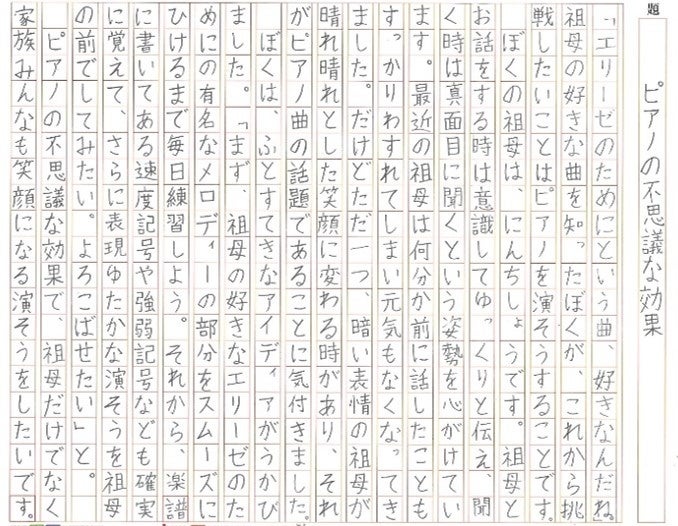 題
ピアノの不思議な効果
「エリーゼのためにという曲、好きなんだね。
祖母の好きな曲を知ったぼくが、これから挑
戦したいことはピアノを演そうすることです。
ぼくの祖母は、にんちしょうです。祖母と
お話をする時は意識してゆっくりと伝え、聞
く時は真面目に聞くという姿勢を心がけてい
ます。最近の祖母は何分か前に話したことも
すっかりわすれてしまい元気もなくなってき
ました。だけどただ一つ、暗い表情の祖母が
晴れ晴れとした笑顔に変わる時があり、それ
がピアノ曲の話題であることに気付きました。
ぼくは、ふとすてきなアイディアがうかび
ました。「まず、祖母の好きなエリーゼのた
めにの有名なメロディーの部分をスムーズに
ひけるまで毎日練習しよう。それから、楽譜
に書いてある速度記号や強弱記号なども確実
に覚えて、さらに表現ゆたかな演そうを祖母
の前でしてみたい。よろこばせたい」と。
ピアノの不思議な効果で、祖母だけでなく
家族みんなも笑顔になる演そうをしたいです。